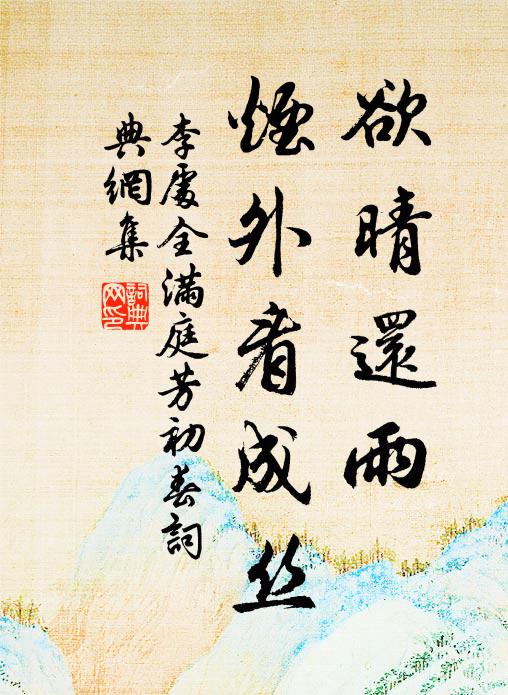 欲晴還雨
煙外看成丝
李處全滿庭芳初春詞
典網集
詞典
网印